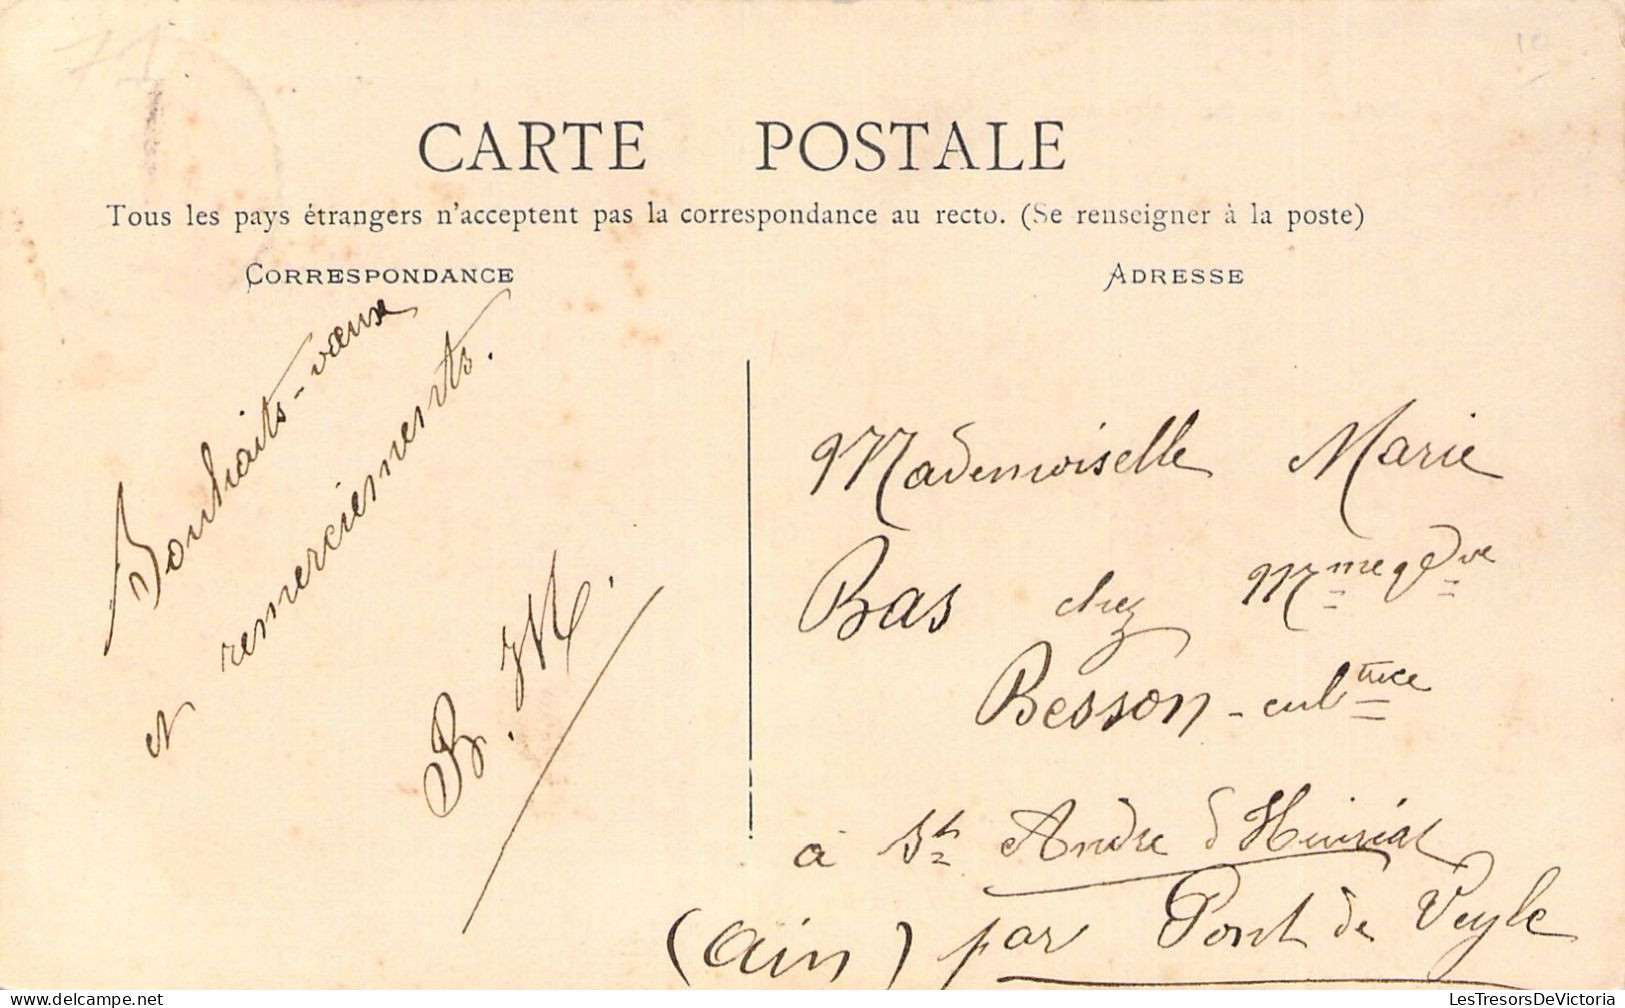 71
10
CARTE POSTALE
Tous les pays étrangers n'acceptent pas la correspondance au recto. (Se renseigner à la poste)
CORRESPONDANCE
Souhaits - vœux
et remerciements.
B. M.
ADRESSE
Mademoiselle Marie
Bas chez Mme Vve
Besson - cultrice
à St André d'Huiriat
(Ain) par Pont de Veyle
LesTresorsDeVictoria